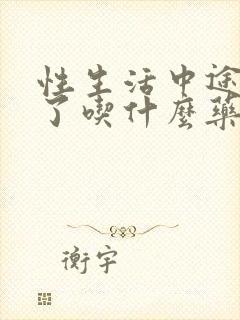 性生活中途
了喫什麽藥
衡宇